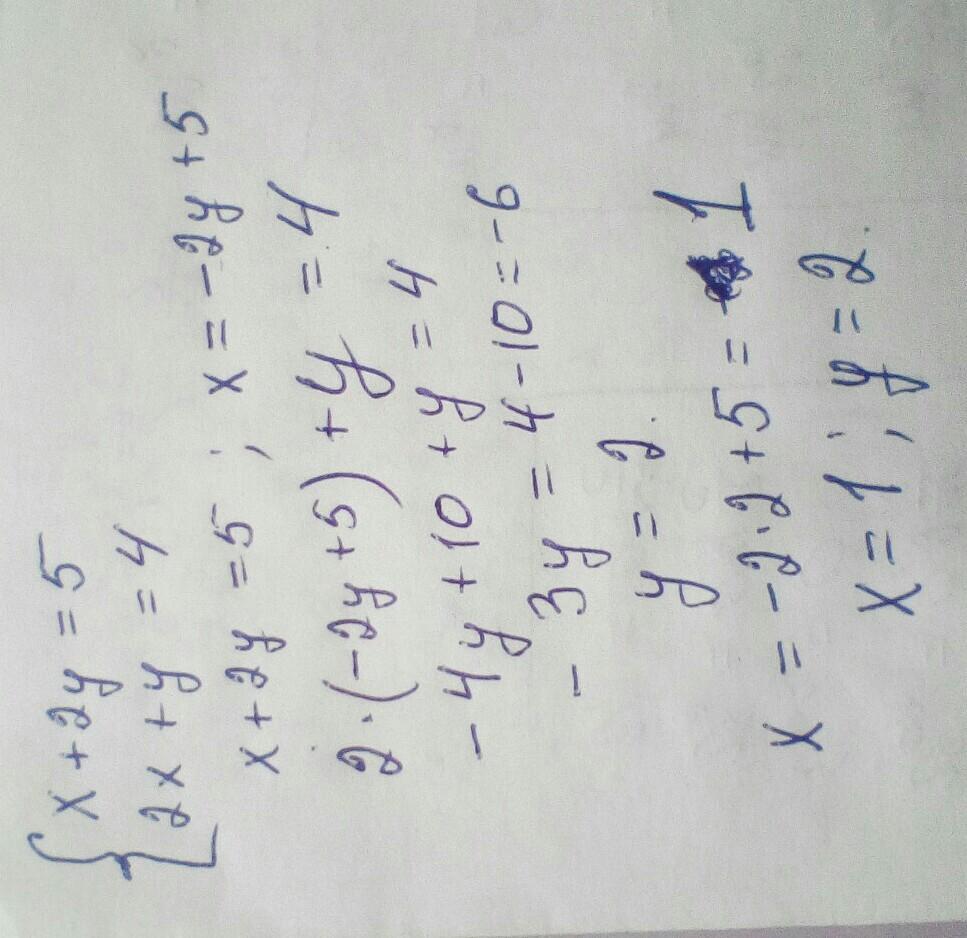 { x + 2y = 5
2x + y = 4
x + 2y = 5 ; x = -2y + 5
2·(-2y + 5) + y = 4
-4y + 10 + y = 4
-3y = 4 - 10 = -6
y = 2.
x = -2·2 + 5 = 1
x = 1 ; y = 2.